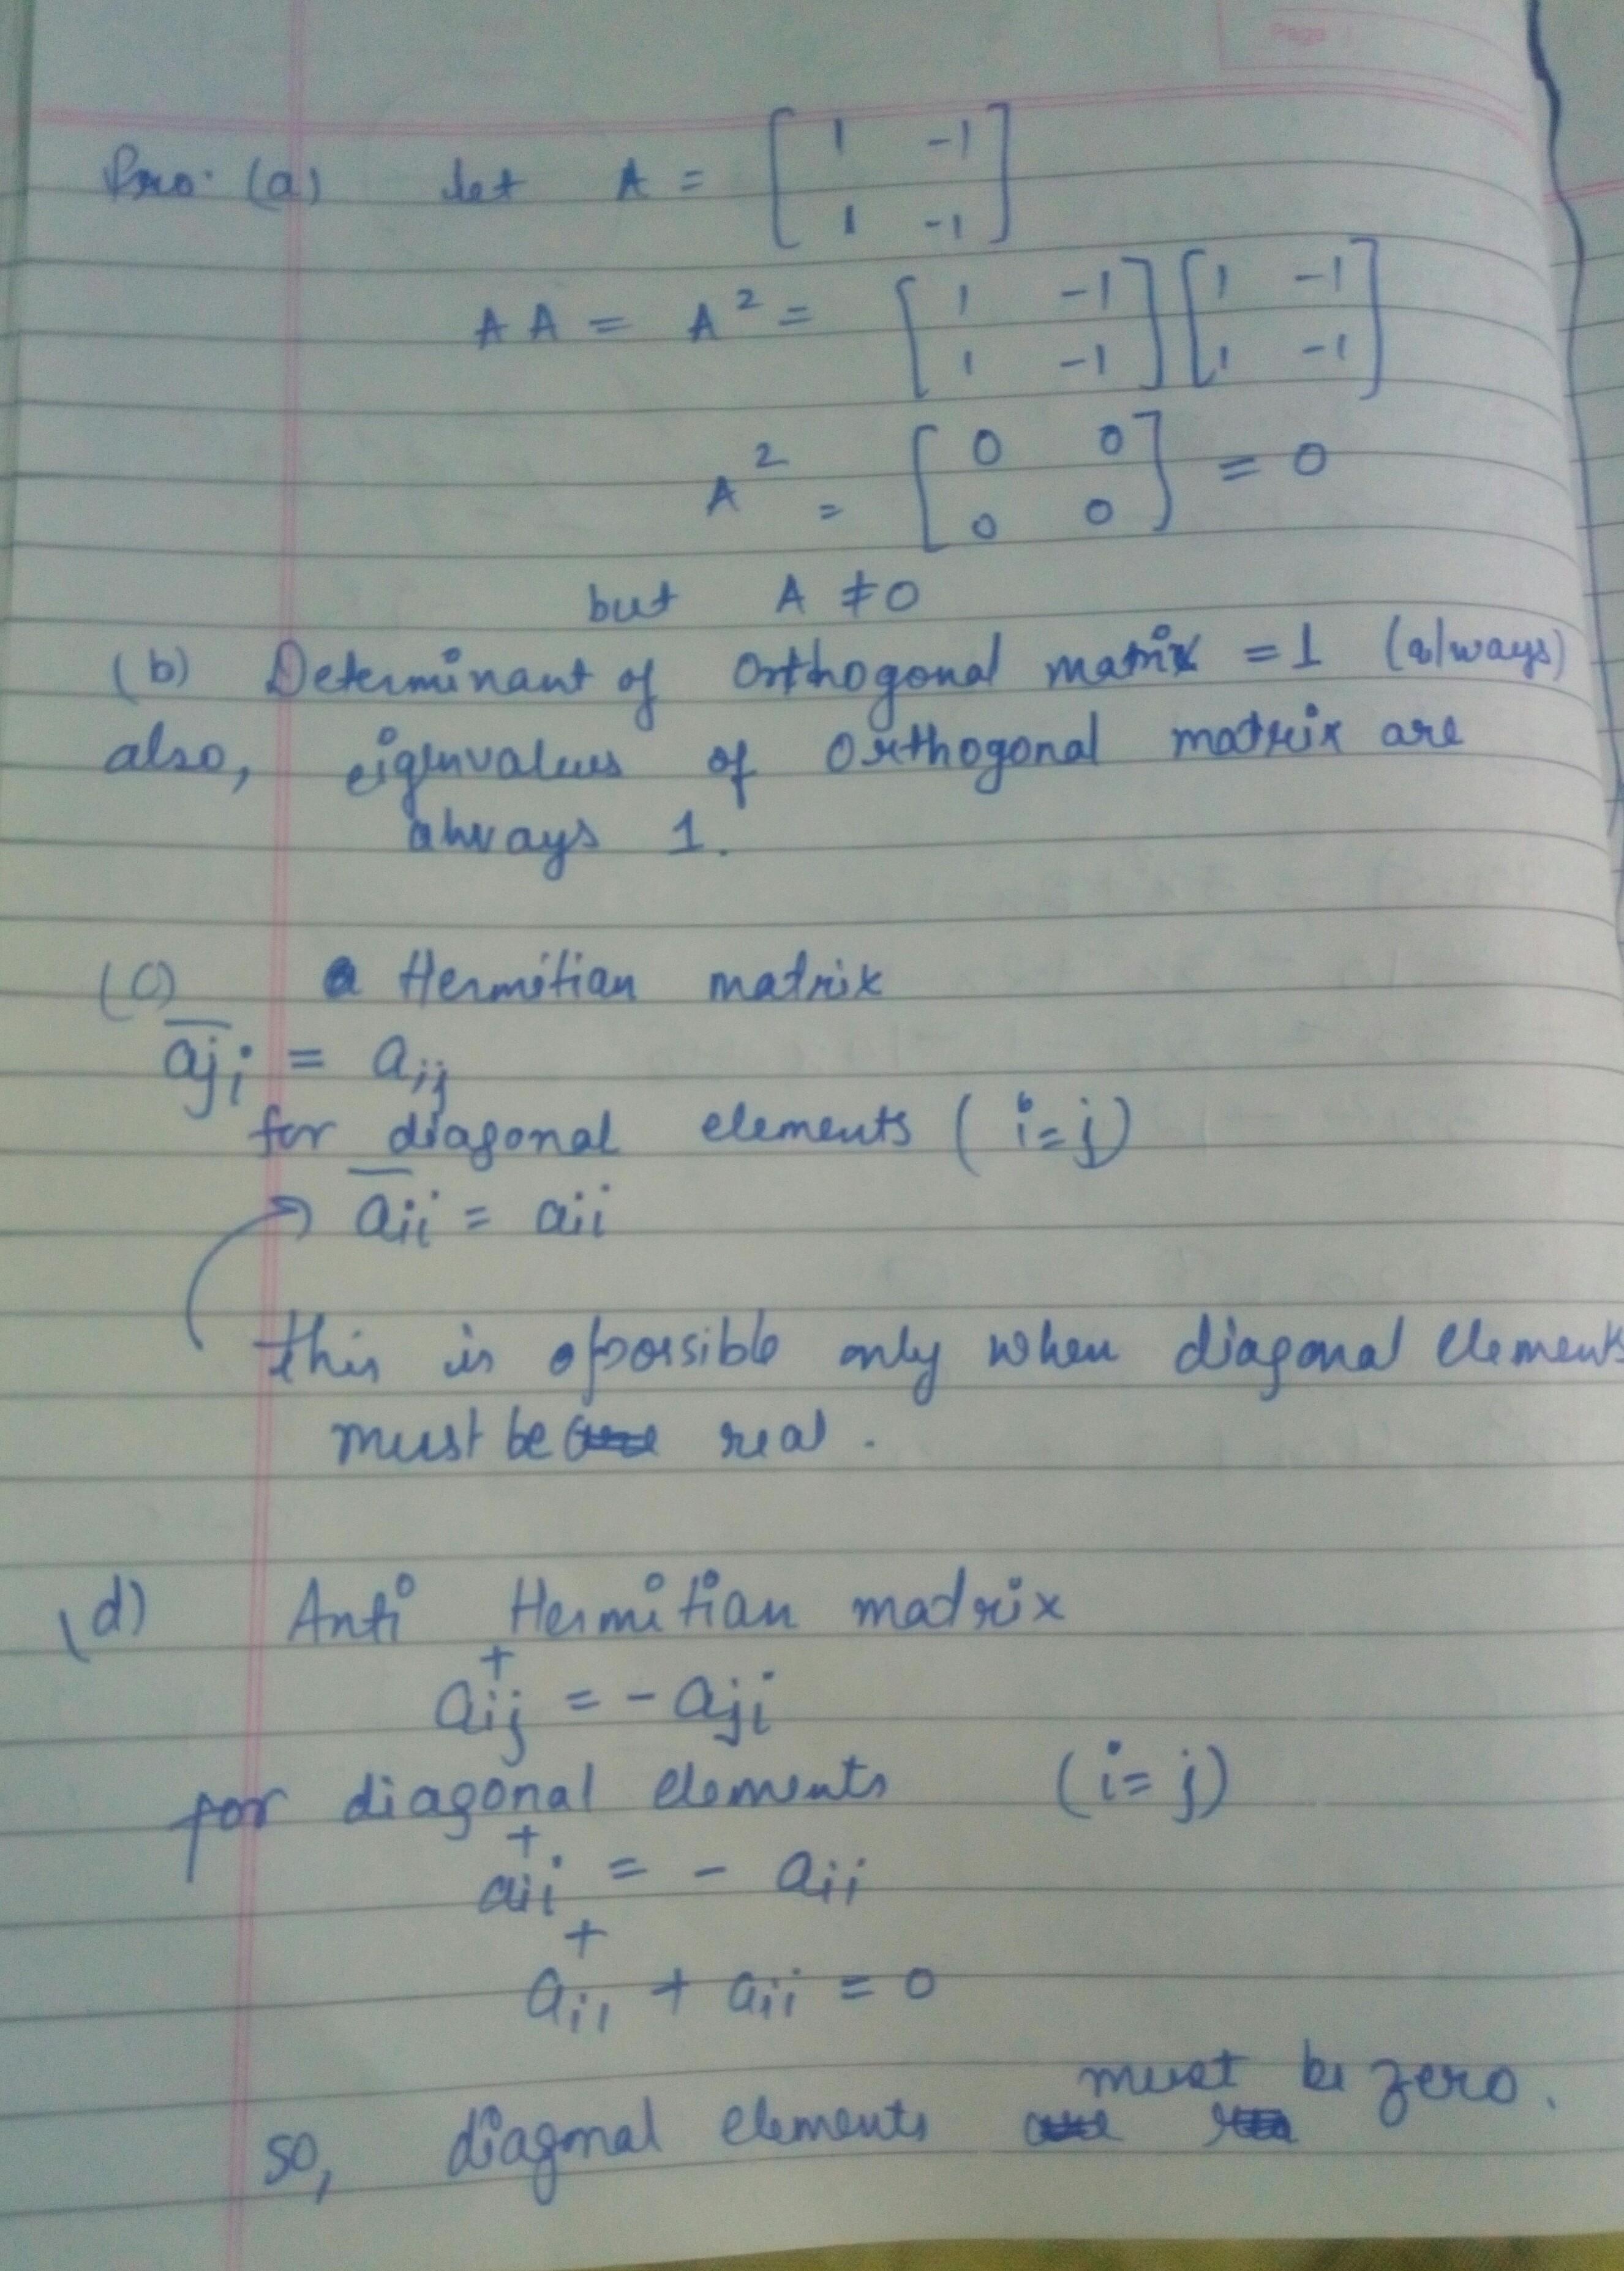 Pro. (a) let A = [ 1 -1
1 -1 ]
AA = A² = [ 1 -1 ] [ 1 -1 ]
[ 1 -1 ] [ 1 -1 ]
A² = [ 0 0
0 0 ] = 0
but A ≠ 0
(b) Determinant of Orthogonal matrix = 1 (always)
also, eigenvalues of Orthogonal matrix are
always 1.
(c) a Hermitian matrix
a̅j̅i = aij
for diagonal elements ( i=j)
a̅ii = aii
this is possible only when diagonal elements
must be real.
(d) Anti Hermitian matrix
aij⁺ = - aji
for diagonal elements (i=j)
aii⁺ = - aii
aii⁺ + aii = 0
so, diagonal elements must be zero.